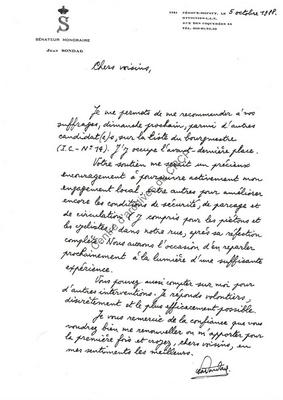 S
SÉNATEUR HONORAIRE
Jean SONDAG
5 octobre 1988.
Chers voisins,
Je me permets de me recommander à vos
suffrages, dimanche prochain, parmi d'autres
candidat(e)s, sur la liste du bourgmestre
(I.C.-N° 14). J'y occupe l'avant-dernière place.
Votre soutien me serait un précieux
encouragement à poursuivre activement mon
engagement local, entre autres pour améliorer
encore les conditions de sécurité, de parcage et
de circulation (y compris pour les piétons et
les cyclistes) dans notre rue, après sa réfection
complète. Nous aurons l'occasion d'en reparler
prochainement à la lumière d'une suffisante
expérience.
Vous pouvez aussi compter sur moi pour
d'autres interventions. Je réponds volontiers,
discrètement et le plus efficacement possible.
Je vous remercie de la confiance que vous
voudrez bien me renouveller ou m'apporter pour
la première fois et croyez, chers voisins, en
mes sentiments les meilleurs.